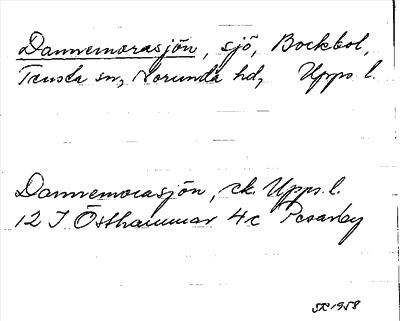 Dannemorasjön, sjö, Bockbol,
Tensta sn, Norunda hd, Upps. l.
Dannemorasjön, ek. Upps. l.
12 I Östhammar 4c Persarby
1958